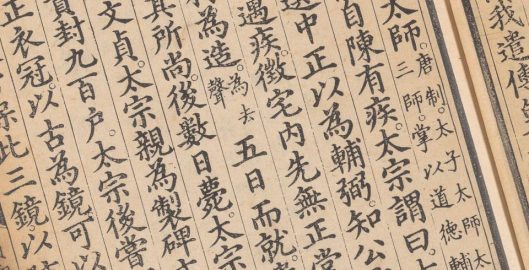 我遣
太師。唐制。太子太師太
三師。掌以道德輔
自陳有疾。太宗謂曰。太
中正以為輔弼。知公
遇疾。徵宅内先無正堂
為造。為去
聲
五日而就。
其所尚。後數日薨。太宗
文貞。太宗親為製碑文
封九百户。太宗後嘗
正衣冠。以古為鏡可以
此三鏡。以